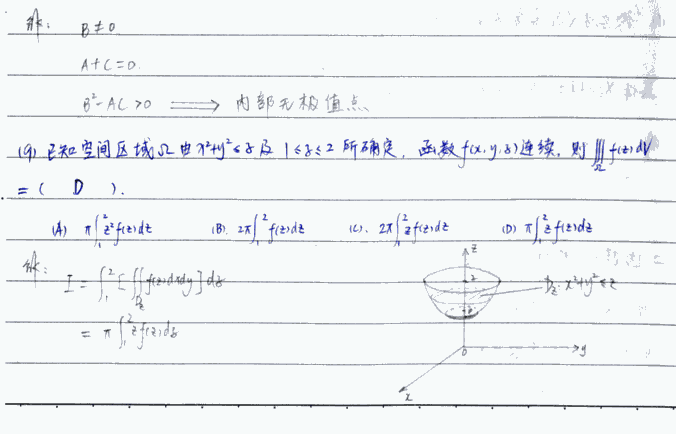 解: B≠0
A+C=0.
B²-AC>0 ⟹ 内部无极值点
(9) 已知空间区域Ω由x²+y²≤z及1≤z≤2所确定, 函数f(x,y,z)连续, 则∭_Ω f(z)dV
= ( D ).
(A) π∫₁²z²f(z)dz (B). 2π∫₁²f(z)dz (C). 2π∫₁²zf(z)dz (D) π∫₁²zf(z)dz
解: I = ∫₁²[∬_{D_z}f(z)dxdy]dz
= π∫₁²zf(z)dz
z
2
D_z: x²+y²≤z
0
y
x